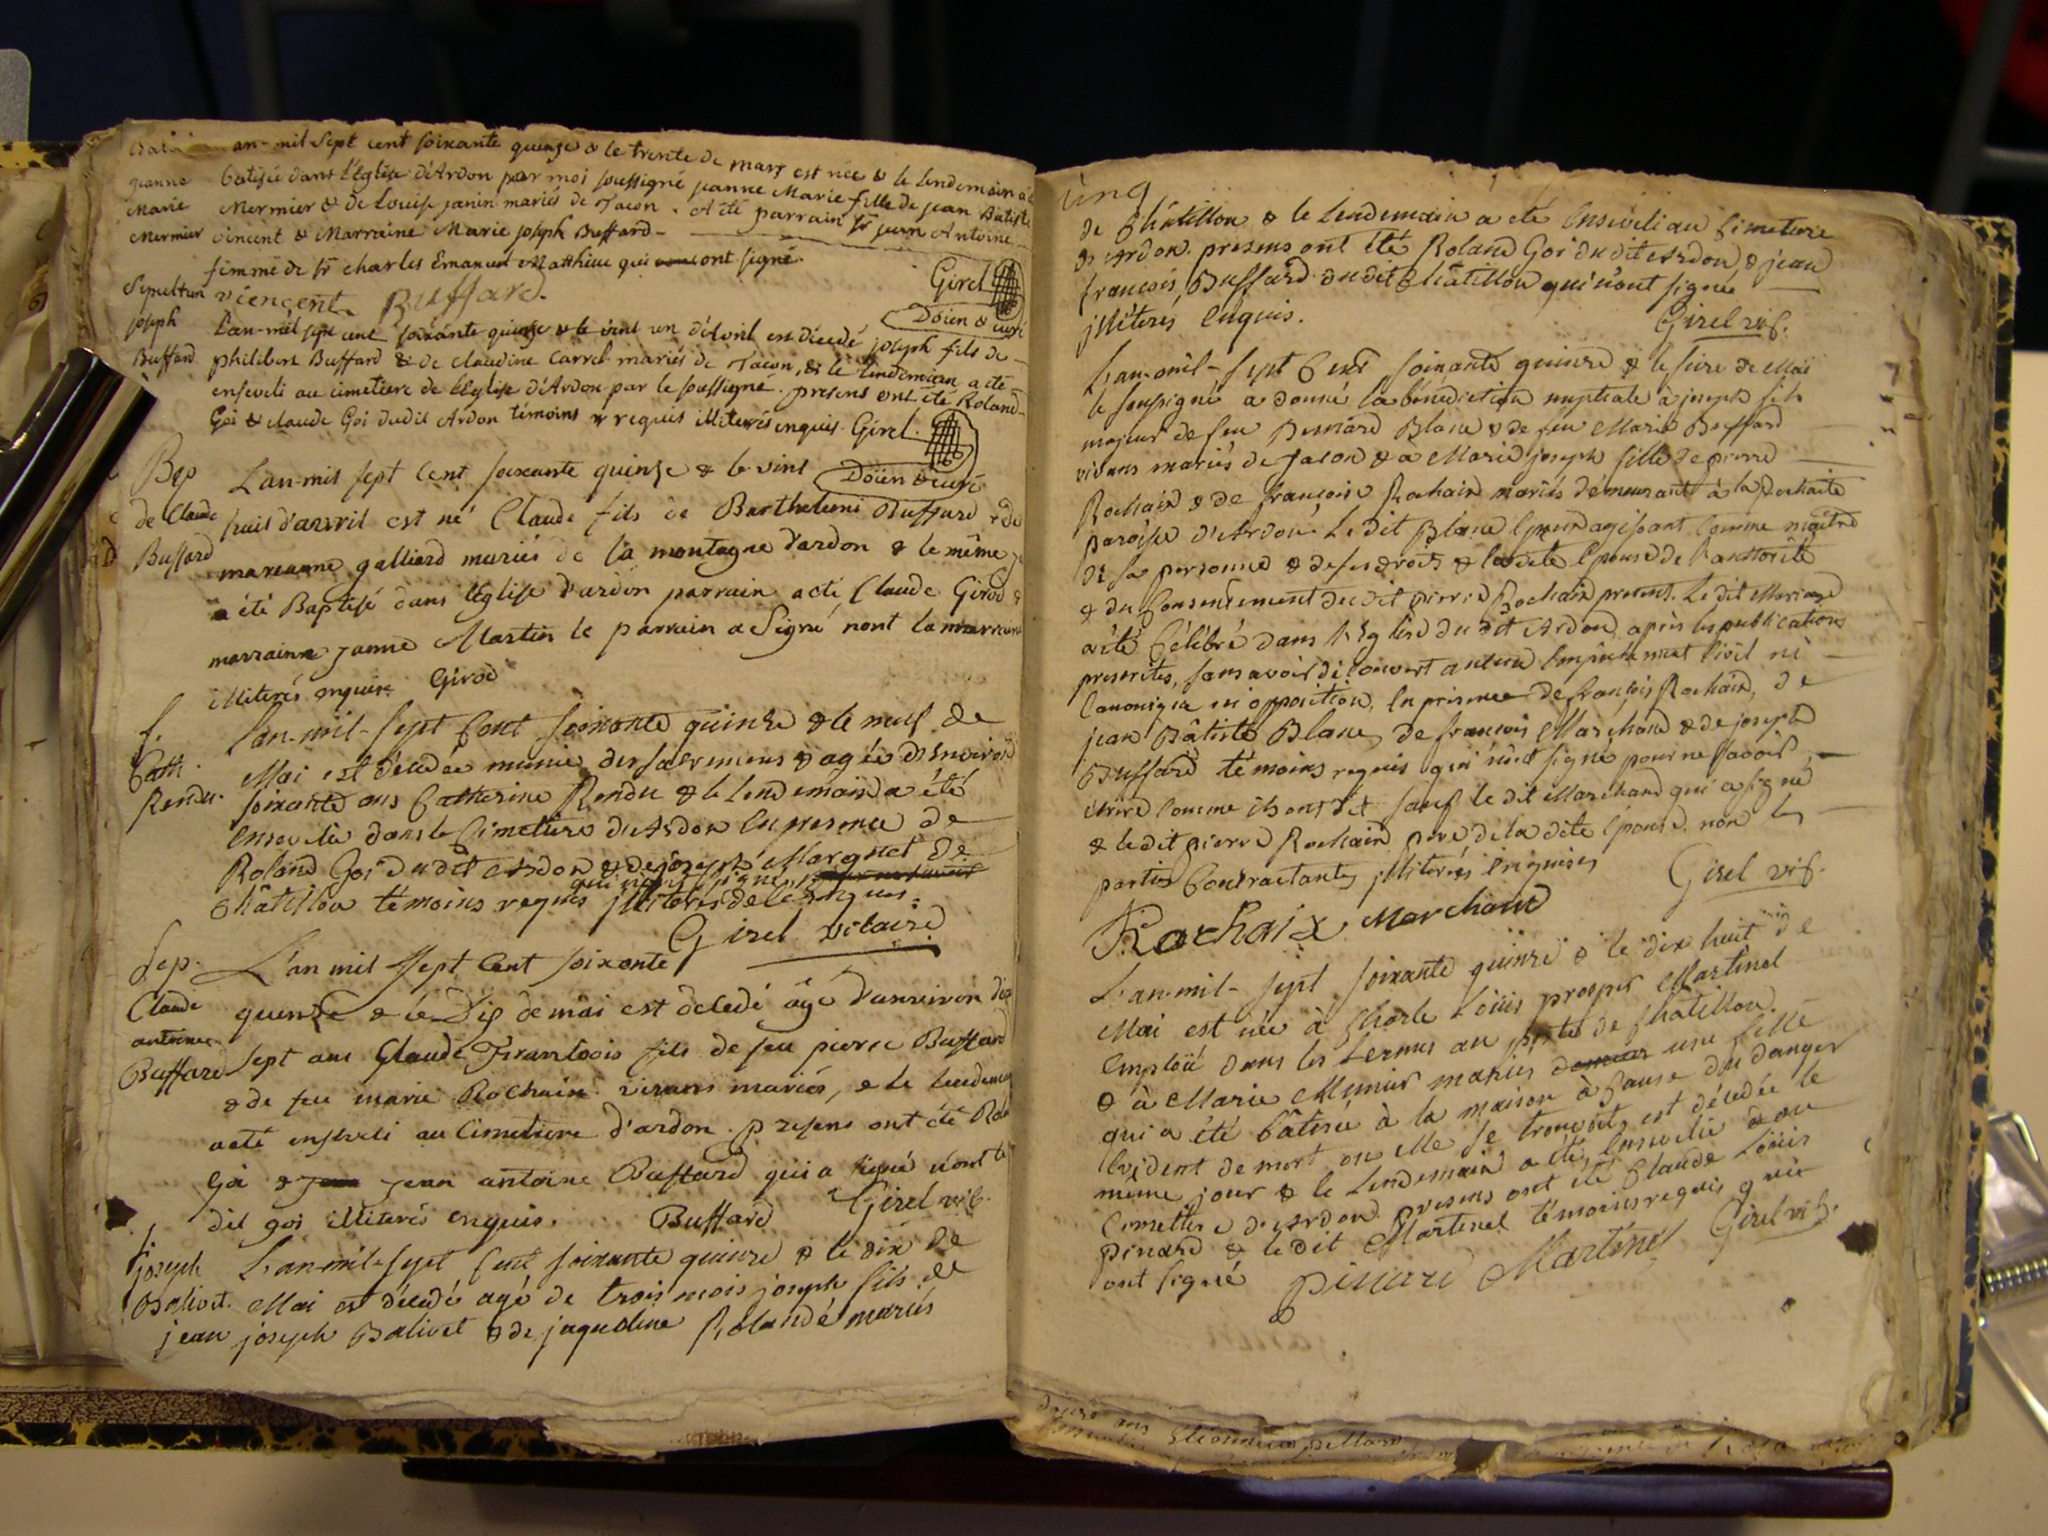 an-mil Sept cent soixante quinze & le trente de mars est née & le lendemain a
jeanne batisée dans l'Eglise d'Ardon par moi soussigné jeanne Marie fille de jean Batiste
Marie Mermier & de Louise janin mariés de Tacon. A été parrain Sr jean Antoine
Mermier vincent & Marraine Marie joseph Buffard
femme de Sr charles Emanuel Matthieu qui ont signé.
viencent Buffard. Girel
Doïen & curé
Sepulture
joseph L'an-mil sept cent soixante quinze & le vint un d'Avril est décédé joseph fils de
Buffard philibert Buffard & de claudine Carrel mariés de Tacon, & le lendemain a été
enseveli au cimetiere de l'Eglise d'Ardon par le soussigné. presens ont été Roland
Goi & claude Goi dudit Ardon temoins requis illiterés enquis. Girel.
Doïen & curé
Bap L'an-mil sept cent soixante quinze & le vint
de Claude huit d'avvril est né Claude fils de Barthelemi Buffard & de
Buffard marianne galliard mariés de la montagne d'ardon & le même
a été Baptisé dans l'Eglise d'ardon parrain a été Claude Girod &
marrainne janne Martin le parrain a Signé nont la marraine
illiterés enquise Girod
S. L'an-mil-sept Cent soixante quinze & le neuf de
Cath. Mai est décédée munie des sacremens & agée d'environ
Rendu. soixante ans Catherine Rendu & le lendemain a été
ensevelie dans le Cimetiere d'Ardon en presence de
Roland Goi du dit Ardon & de joseph Marquet de
qui n'ont signé
Châtillon témoins requis illiterés de ce enquis.
Girel vicaire
Sep. L'an mil sept Cent soixante
Claude quinze & le Dix de mai est decedé âgé d'anviron dix
antoine sept ans Claude Francois fils de feu pierre Buffard
Buffard & de feu marie Rochaix vivans mariés, & le lendemain
a eté enseveli au Cimetiere d'ardon. presens ont été
Goi & jean antoine Buffard qui a signé nont le
dit goi illiterés enquis. Buffard Girel vic.
S.
joseph L'an-mil-sept cent soixante quinze & le dix de
Balivet. Mai est décedé agé de trois mois joseph fils de
jean joseph Balivet & de jaqueline Rolandé mariés
cinq
de Châtillon & le lendemain a été enseveli au Cimetiere
d'Ardon. presens ont été Roland Goi du dit Ardon, & jean
francois Buffard du dit Châtillon qui n'ont signé
illiterés enquis. Girel vic.
L'an-mil-sept Cent soixante quinze & le seize de Mai
le soussigné a donné la bénédiction nuptiale à joseph fils
majeur de feu Bernard Blanc & de feu Marie Buffard
vivans mariés de Tacon & a Marie joseph fille de pierre
Rochaix & de francoise Rochaix mariés demeurant à la
paroisse d'Ardon. Le dit Blanc époux agissant comme maître
de sa personne & de ses droits & la dite épouse de l'authorité
& du Consentement du dit pierre Rochaix present. Le dit Mariage
a été Célébré dans l'Eglise du dit Ardon, après les publications
prescrites, sans avoir découvert aucun empêchement Civil ni
Canonique ni opposition, en présence de françois Rochaix, de
jean Bâtiste Blanc, de francois Marchand & de joseph
Buffard témoins requis qui n'ont signé pour ne savoir
écrire comme ils ont dit sauf le dit Marchand qui a signé
& le dit pierre Rochaix pere de la dite épouse. non les
parties Contractantes illiterés enquises Girel vic.
Rochaix Marchand
L'an-mil-sept soixante quinze & le dix huit de
Mai est née à Charle Loüis prosper Martinel
emploïé dans les fermes au poste de Chatillon
& à Marie Munier mariés une fille
qui a été bâtisée à la maison à Cause du danger
évident de mort ou elle se trouvoit, est décedée le
même jour & le lendemain a été ensevelie au
Cimetiere d'Ardon. presens ont été Claude Loüis
pinard & le dit Martinel témoins requis qui
ont signé pinard Martinel Girel vic.